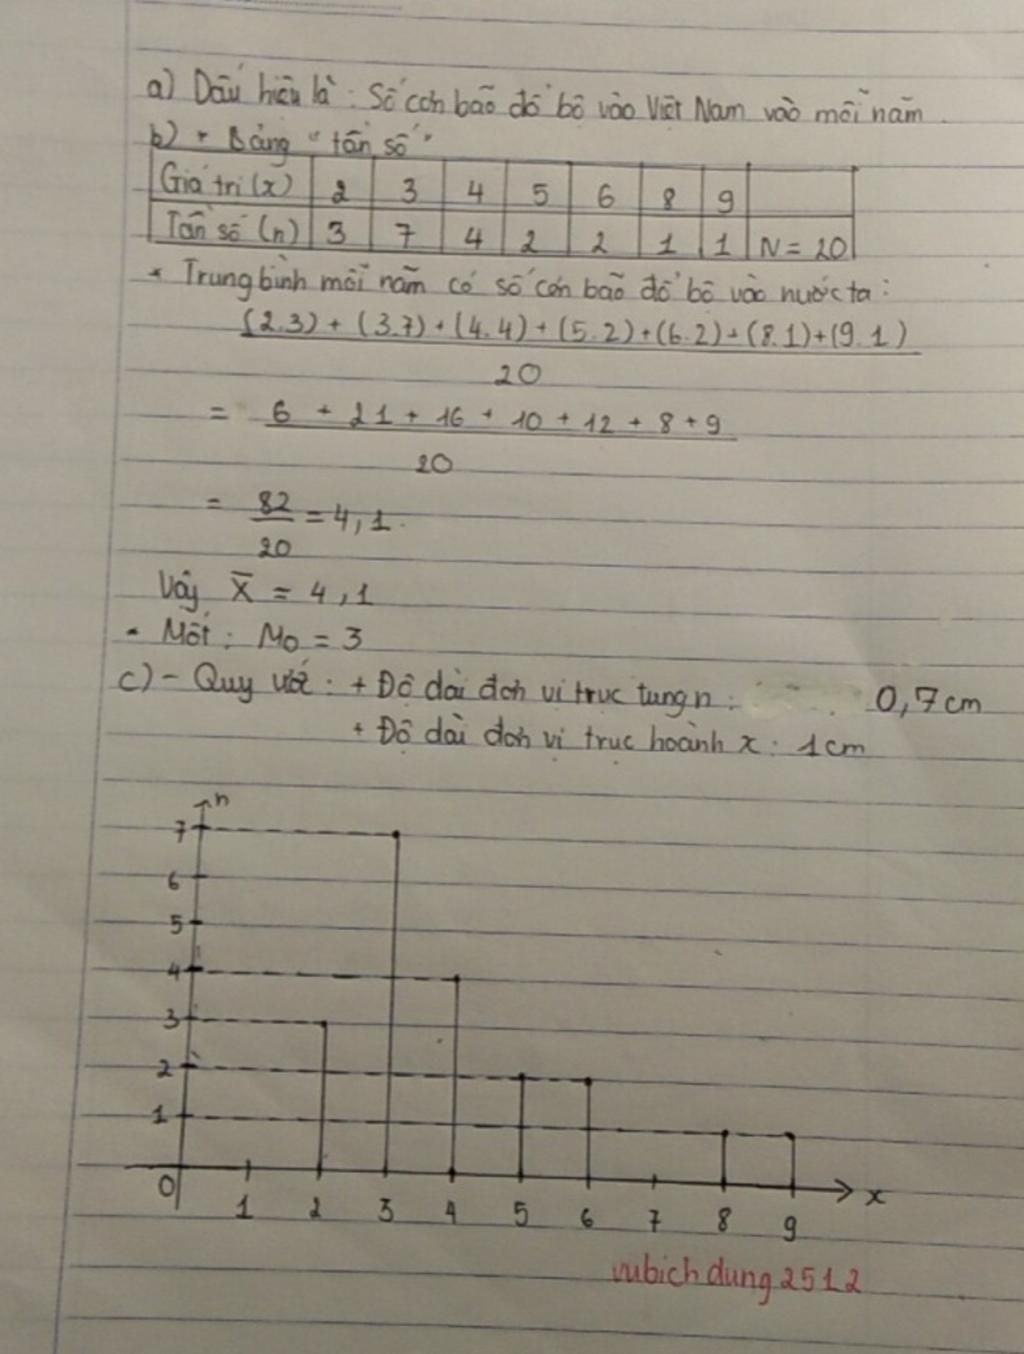 a) Dấu hiệu là : Số cơn bão đổ bộ vào Việt Nam vào mỗi năm.
b) * Bảng "tần số"
Giá trị (x) 2 3 4 5 6 8 9
Tần số (n) 3 7 4 2 2 1 1 N = 20
* Trung bình mỗi năm có số cơn bão đổ bộ vào nước ta :
(2.3) + (3.7) + (4.4) + (5.2) + (6.2) + (8.1) + (9.1)
20
= 6 + 21 + 16 + 10 + 12 + 8 + 9
20
= 82 = 4,1.
20
Vậy X̄ = 4,1
- Mốt : Mo = 3
c) - Quy ước : + Độ dài đơn vị trục tung n : 0,7cm
+ Độ dài đơn vị trục hoành x : 1cm
n
7
6
5
4
3
2
1
0 1 2 3 4 5 6 7 8 9 x
vubichdung2512